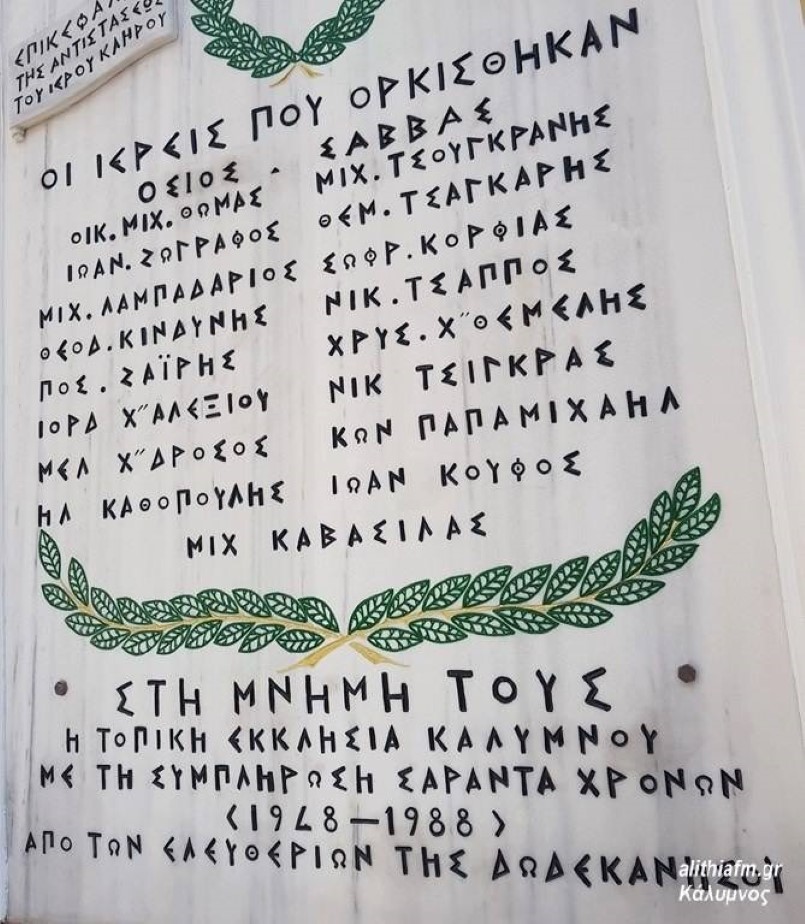 ΕΠΙΚΕΦΑΛ
ΤΗΣ ΑΝΤΙΣΤΑΣΕΩΣ
ΤΟΥ ΙΕΡΟΥ ΚΛΗΡΟΥ
ΟΙ ΙΕΡΕΙΣ ΠΟΥ ΟΡΚΙΣΘΗΚΑΝ
ΟΣΙΟΣ · ΣΑΒΒΑΣ
ΟΙΚ. ΜΙΧ. ΘΩΜΑΣ ΜΙΧ. ΤΣΟΥΓΚΡΑΝΗΣ
ΙΩΑΝ. ΖΩΓΡΑΦΟΣ ΘΕΜ. ΤΣΑΓΚΑΡΗΣ
ΜΙΧ. ΛΑΜΠΑΔΑΡΙΟΣ ΣΩΦΡ. ΚΟΡΦΙΑΣ
ΘΕΟΔ. ΚΙΝΔΥΝΗΣ ΝΙΚ. ΤΣΑΠΠΟΣ
ΠΟΣ. ΖΑΪΡΗΣ ΧΡΥΣ. Χ"ΘΕΜΕΛΗΣ
ΙΟΡΔ Χ"ΑΛΕΞΙΟΥ ΝΙΚ ΤΣΙΓΚΡΑΣ
ΜΕΛ Χ"ΔΡΟΣΟΣ ΚΩΝ ΠΑΠΑΜΙΧΑΗΛ
ΗΛ ΚΑΘΟΠΟΥΛΗΣ ΙΩΑΝ ΚΟΥΦΟΣ
ΜΙΧ ΚΑΒΑΣΙΛΑΣ
ΣΤΗ ΜΝΗΜΗ ΤΟΥΣ
Η ΤΟΠΙΚΗ ΕΚΚΛΗΣΙΑ ΚΑΛΥΜΝΟΥ
ΜΕ ΤΗ ΣΥΜΠΛΗΡΩΣΗ ΣΑΡΑΝΤΑ ΧΡΟΝΩΝ
(1948-1988)
ΑΠΟ ΤΩΝ ΕΛΕΥΘΕΡΙΩΝ ΤΗΣ ΔΩΔΕΚΑΝΗΣΟΥ
alithiafm.gr
Κάλυμνος